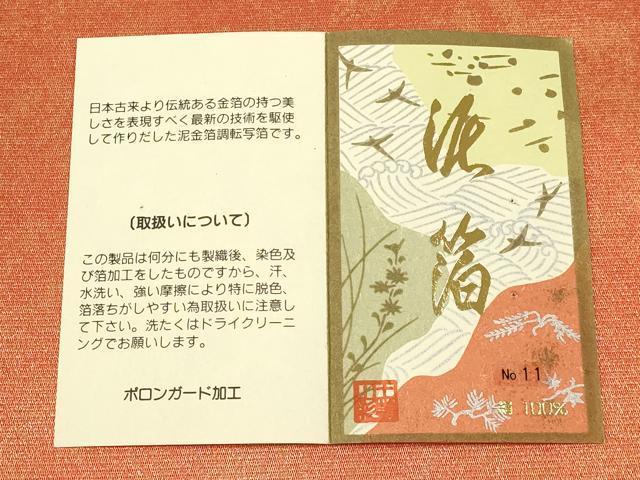 日本古来より伝統ある金箔の持つ美
しさを表現すべく最新の技術を駆使
して作りだした泥金箔調転写箔です。
(取扱いについて)
この製品は何分にも製織後、染色及
び箔加工をしたものですから、汗、
水洗い、強い摩擦により特に脱色、
箔落ちがしやすい為取扱いに注意し
て下さい。洗たくはドライクリーニ
ングでお願いします。
ポロンガード加工
泥箔
No 11
100%